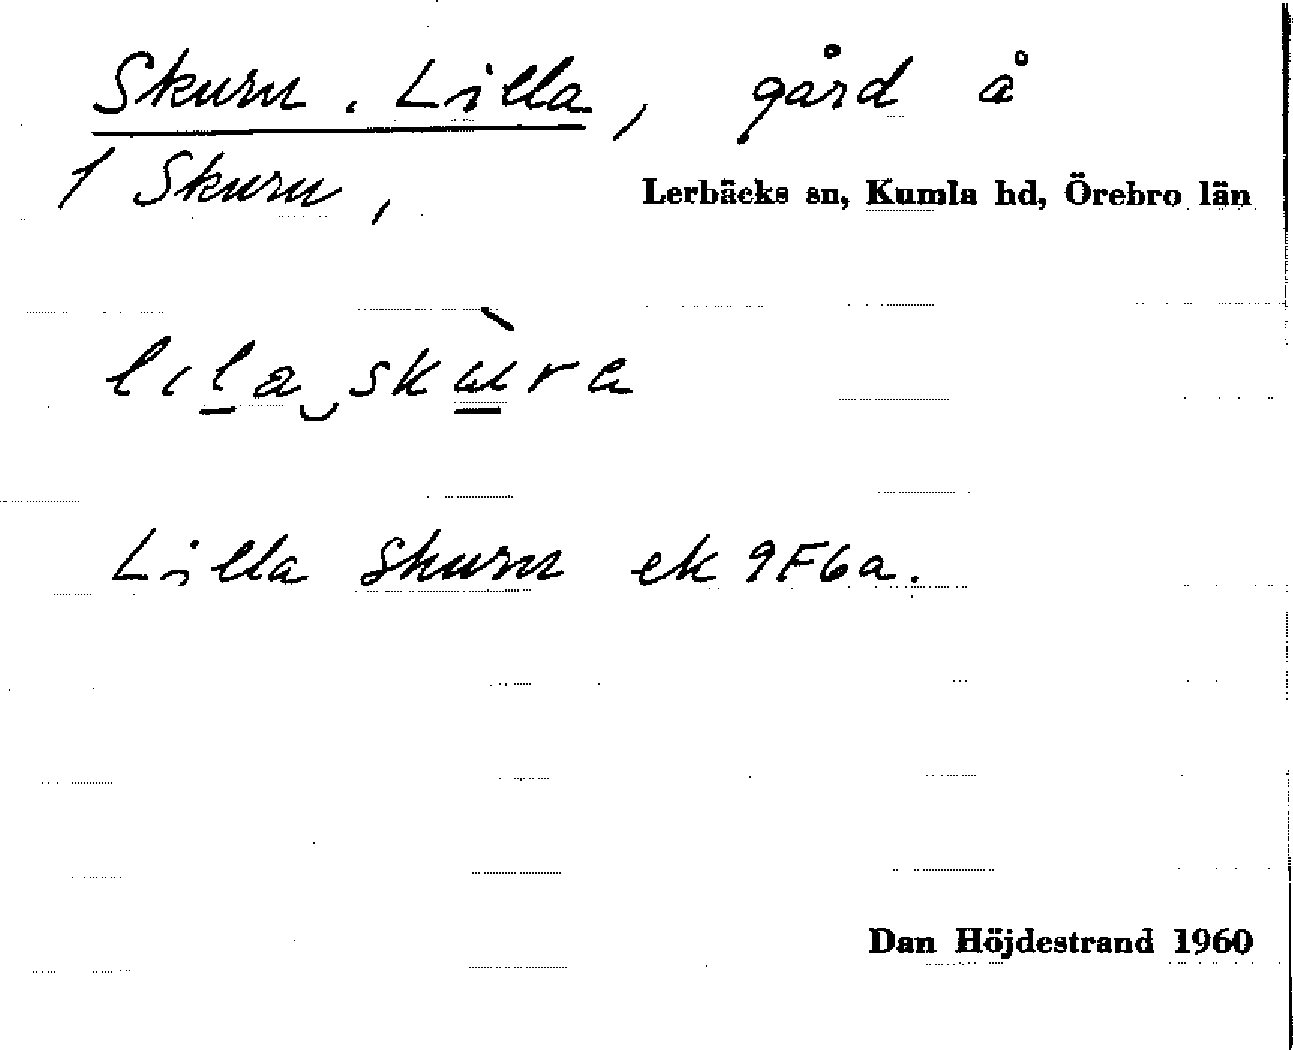 Skuru, Lilla, gård å
1 Skuru,
Lerbäcks sn, Kumla hd, Örebro län
lila skùra
Lilla Skuru ek 9F6a.
Dan Höjdestrand 1960